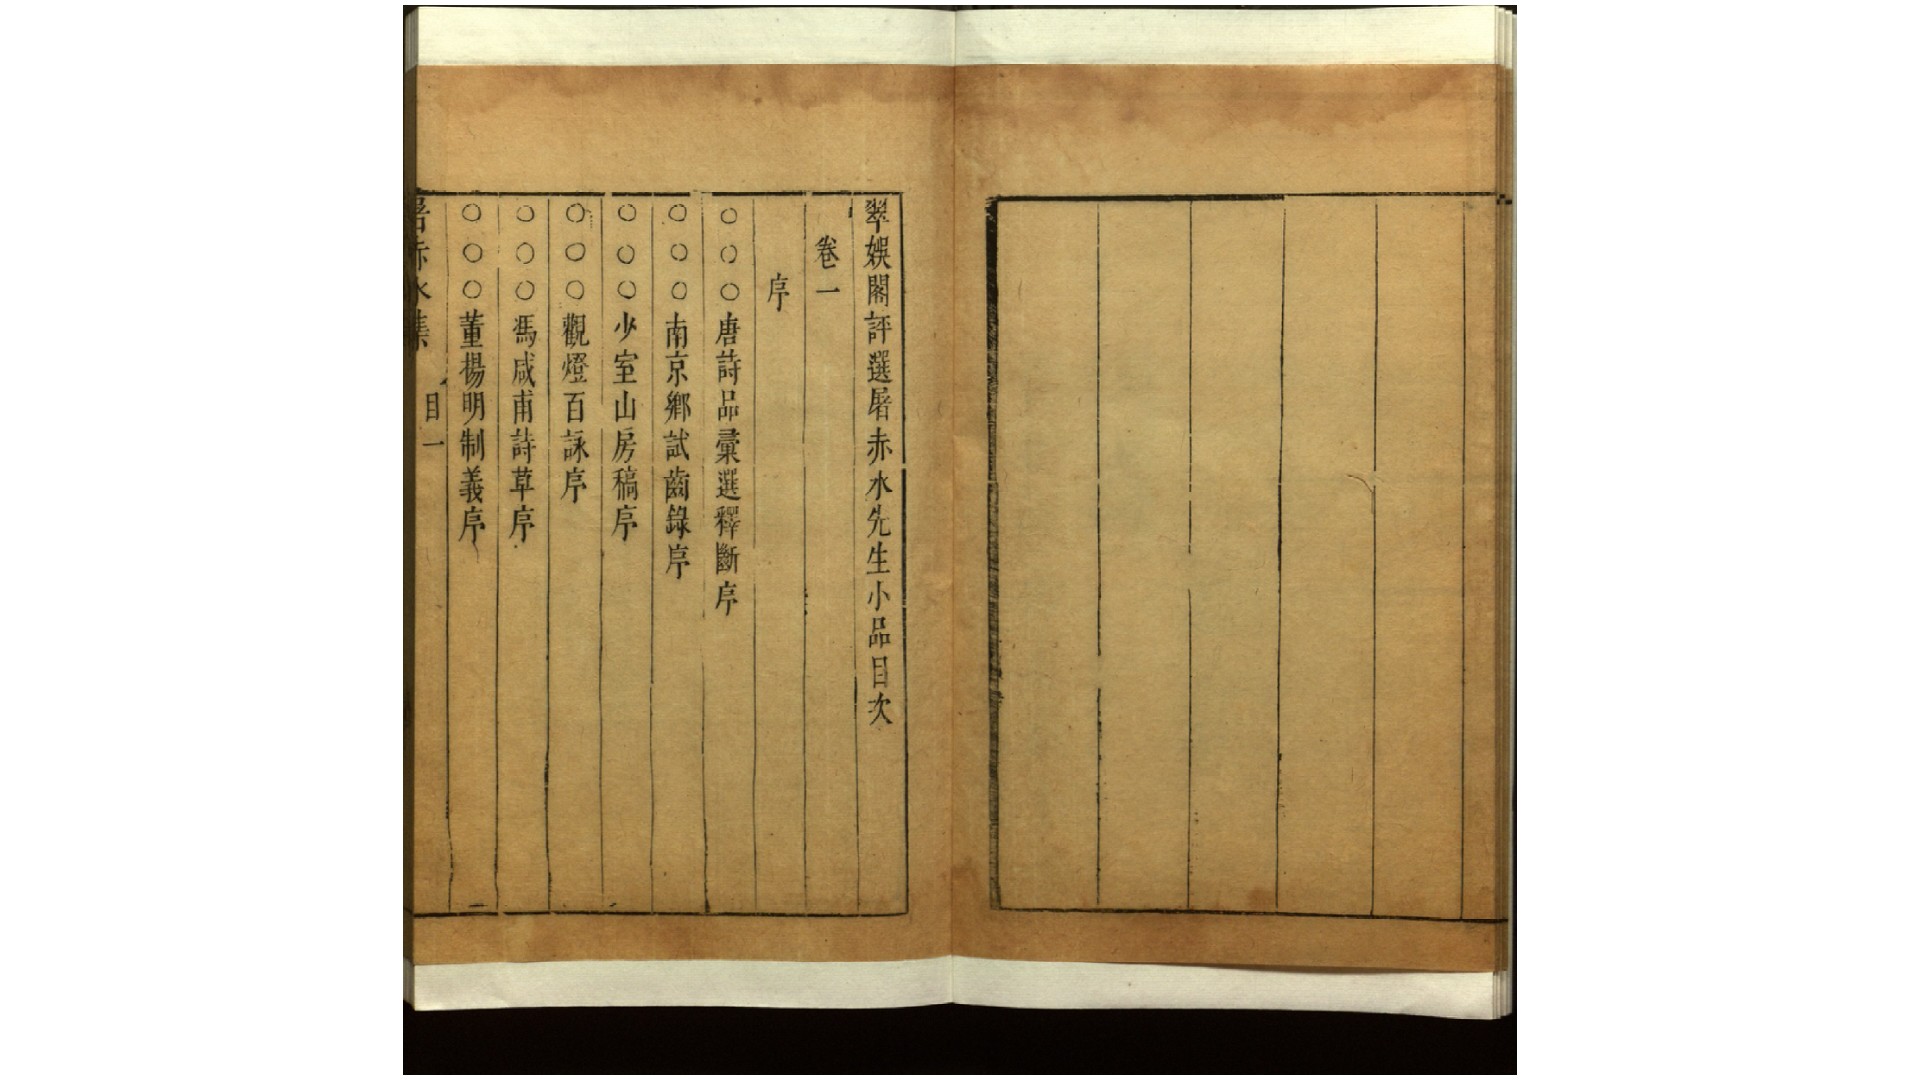 翠娛閣評選屠赤水先生小品目次
卷一
序
○○○唐詩品彙選釋斷序
○○○南京鄉試齒錄序
○○○少室山房稿序
○○○觀燈百詠序
○○○馮咸甫詩草序
○○○董揚明制義序
赤水集 目一